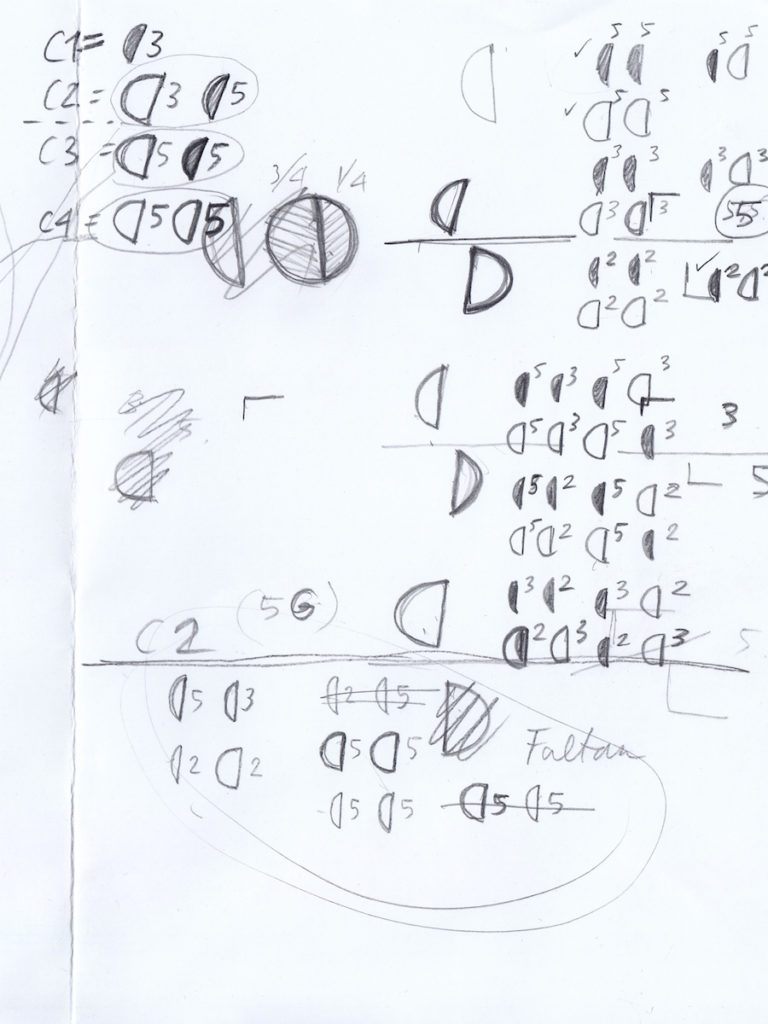 C1 = 3
C2 = 3 5
C3 = 5 5
C4 = 5 5
3/4 1/4
5 5 5 5
5 5
3 3 3 3
3 3 55
2 2 2 2
2 2
5 3 5 3
5 3 5 3
3
5 2 5 2
5
5 2 5 2
3 2 3 2
2 3 2 3
5
C2 (5 G)
5 3 2 5
2 2 5 5
Faltan
5 5 5 5